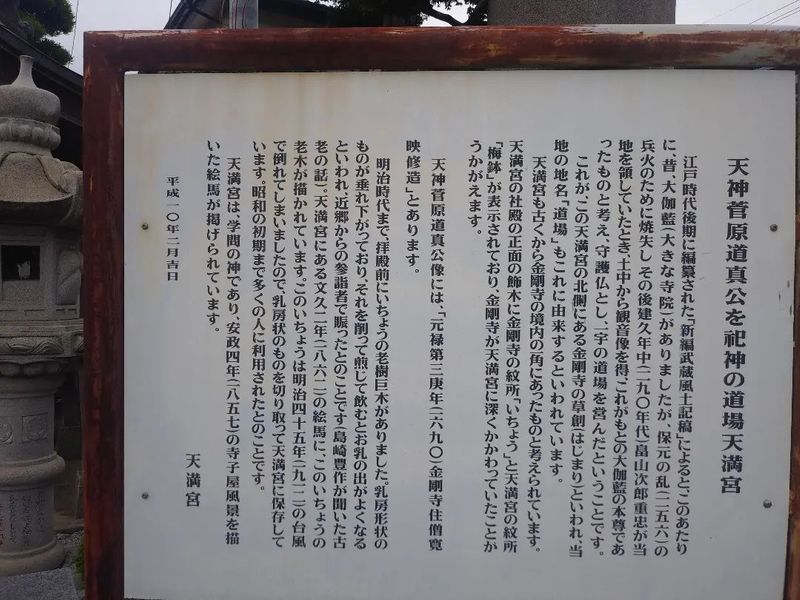 天神菅原道真公を祀神の道場天満宮
江戸時代後期に編纂された「新編武蔵風土記稿」によると、このあたり
に、昔、大伽藍(大きな寺院)がありましたが、保元の乱(一一五六)の
兵火のために焼失し、その後建久年中(一一九〇年代)畠山次郎重忠が当
地を領していたとき、土中から観音像を得、これがもとの大伽藍の本尊であ
ったものと考え、守護仏とし、一宇の道場を営んだということです。
これが、この天満宮の北側にある金剛寺の草創(はじまり)といわれ、当
地の地名「道場」もこれに由来するといわれています。
天満宮も古くから金剛寺の境内の一角にあったものと考えられています。
天満宮の社殿の正面の飾木に金剛寺の紋所「いちょう」と天満宮の紋所
「梅鉢」が表示されており、金剛寺が天満宮に深くかかわっていたことが
うかがえます。
天神菅原道真公像には、「元禄第三庚年(一六九〇)金剛寺住僧寛
映修造」とあります。
明治時代まで、拝殿前にいちょうの老樹巨木がありました。乳房形状の
ものが垂れ下がっており、それを削って煎じて飲むとお乳の出がよくなる
といわれ、近郷からの参詣者で賑ったとのことです(島崎豊作が聞いた古
老の話)。天満宮にある文久二年(一八六二)の絵馬に、このいちょうの
老木が描かれています。このいちょうは明治四十五年(一九一二)の台風
で倒れてしまいましたので、乳房状のものを切り取って天満宮に保存して
います。昭和の初期まで多くの人に利用されたとのことです。
天満宮は、学問の神であり、安政四年(一八五七)の寺子屋風景を描
いた絵馬が掲げられています。
天満宮
平成一〇年二月吉日